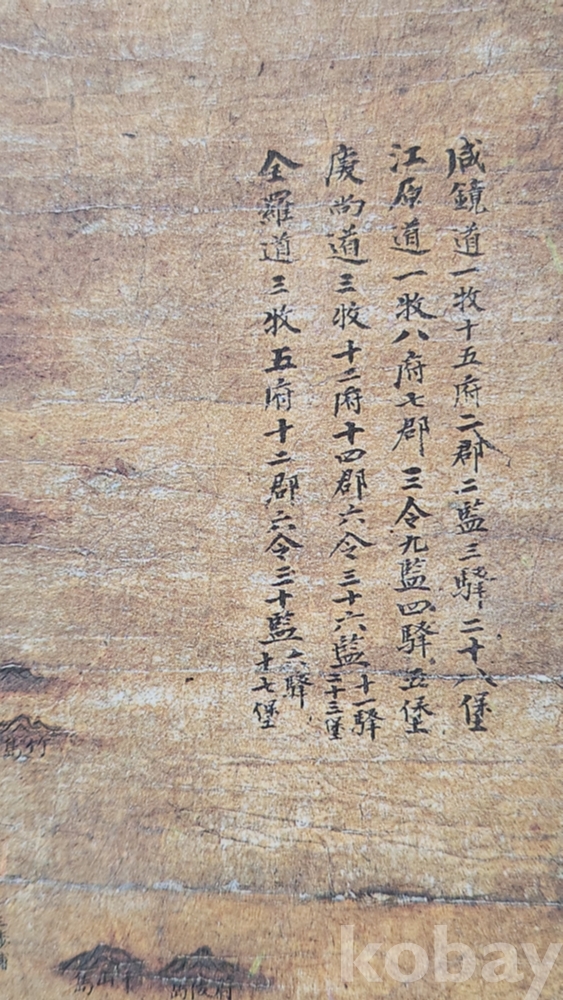 咸鏡道一牧十五府二郡二監三驛二十八堡
江原道一牧八府七郡三令九監四驛五堡
慶尚道三牧十二府十四郡六令三十六監十一驛二十三堡
全羅道三牧五府十二郡六令三十監六驛十七堡
竹島
于山島
kobay